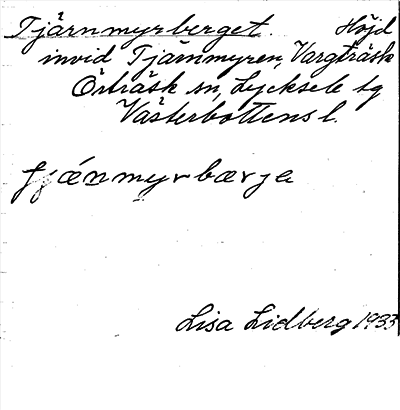 Tjärnmyrberget. Höjd
invid Tjärnmyren, Vargträsk
Örträsk sn, Lycksele tg
Västerbottens l.
fjǽnmyrbærja
Lisa Lidberg 1933